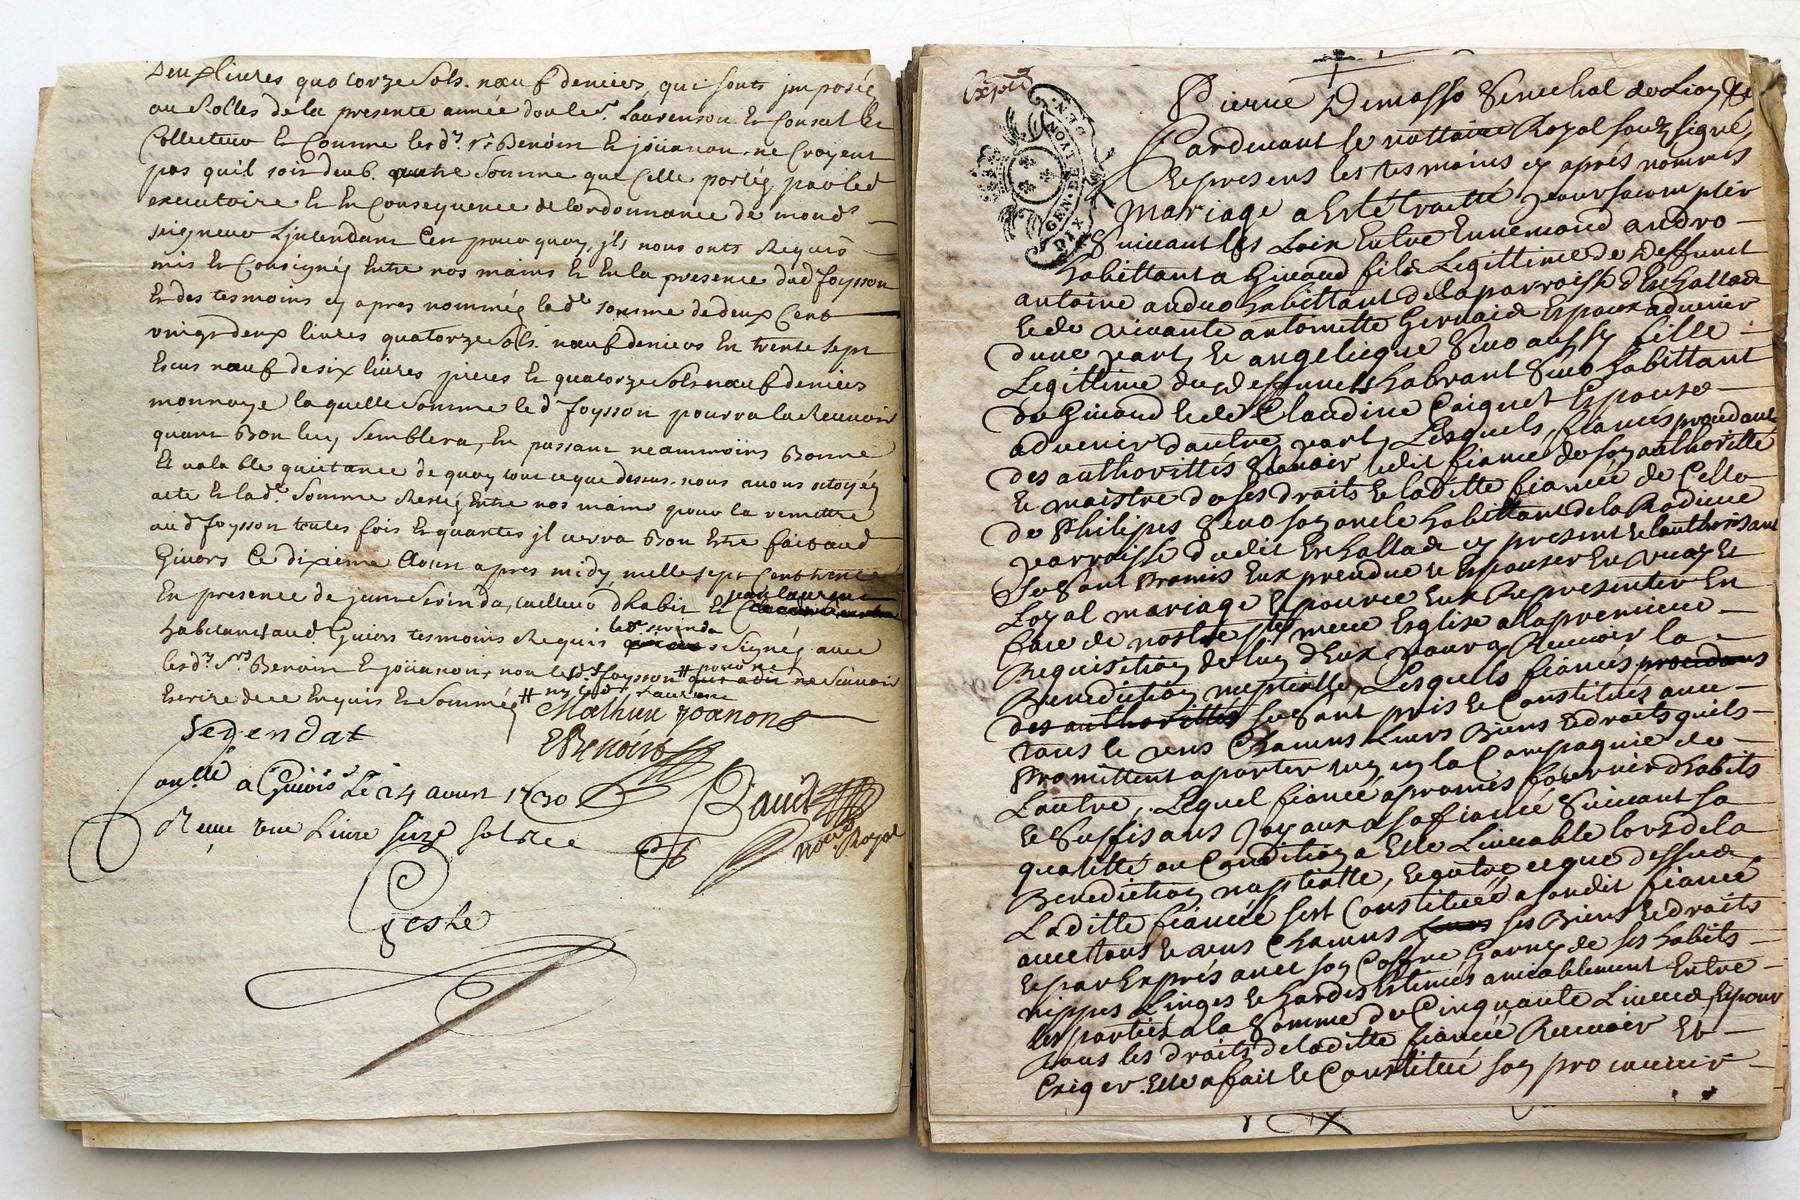 deux livres quatorze sols neuf deniers, qui sonts jmposée
au Rolles de la presente année dont le sr. Laurenson Et Consul Et
Collecteur Et Comme lesd. srs Benoist Et joüanon ne Croyent
pas quil soit deub autre somme que Celle portée par led
executoire Et En Consequence de lordonnance de mond
seigneur Lintendant C'est pourquoy, jls nous onts Requis
mis Et Consignéz Entre nos mains Et En la presence dud foysson
Et des tesmoins cy apres nomméz lad. somme de deux Cent
vingt deux livres quatorze sols neuf deniers En trente sept
Escus neuf de six livres pieces Et quatorze sols neuf deniers
monnoye laquelle somme led foysson pourra la Recevoir
quant Bon luy semblera, En passant neammoins Bonne
Et valable quittance de quoy tout ce que dessus nous avons octoyéz
acte Et lad. somme Restéz Entre nos mains pour la remettre
aud foysson toutes fois Et quantes jl verra Bon Etre fait aud
Givors Ce dixieme Aoust apres midy mille sept Cent trente
En presence de tailleur dhabit Et jean laurent
habitants aud Givors tesmoins Requis signéz avec
lesd. srs Benoist Et joüanon, non led. sr foysson pour ne sçavoir
Escrire de ce Enquis Et Sommé
Mathieu joanon
Segendat
EBenoist
a Givors Le 24 aoust 1730
Baud
Receu une Livre seize sols
nore. Royal
Geste
Expié
Pierre Dumasso Senechal de Lion
GEN DE LYON
DIX
Pardevant le nottaire Royal souz signé,
Et presens les tesmoins cy aprés nommés
Mariage a Esté traitté pour s'acomplir
Suivant les Loix Entre Ennemond andro
habittant a Givord fils Legittime de deffunct
antoine andro habittant de la parroisse d'Eschallad
Et de vivante antoinette Gervaid Epoux advenir
dune part, Et angelicque Seno aussy fille
Legittime du deffunct Seno habittant
de Givord Et de Claudine Caiquet Espouse
advenir dautre part, Lesquels fiancés procedant
des authorittés sçavoir ledit fiancé de soy authoritte
Et maistre de ses droits Et laditte fiancée de Celle
de Philipes Seno soy oncle habittant de la Rodiere
parroisse dudit Eschallad cy present Et lauthorisant
Se sont Promis Eux prendre Et Espouser En vray Et
Loyal mariage Et pour ce Eux Representer En
face de nostre ste mere Esglise a la premiere
Requisition de luy d'Eux pour y Recevoir la
Benediction nuptialle, Lesquels fiancés procedans
des authorittés se sont pris Et Constitués avec
tous Et uns Chacuns Leurs Biens Et droits quils
Promittent aporter un en la Compagnie de
Lautre, Lequel fiancé a promis fournir d'habits
Et Suffisans joyaux a sa fiancé Suivant sa
qualitté ou Condition a Elle Livrable lors de la
Benediction nuptiatte, Et outre ce que dessus
Laditte fiancée sest Constituée a sondit fiancé
avec tous Et uns Chacuns Leurs ses Biens Et droits
Et par Exprés avec soy Coffre Garny de ses habits
nippes Linges Et hardes Estimés amicablement Entre
les parties a la Somme de Cinquante Livres, Et pour
tous les droits de laditte fiancée Recevoir Et
Exiger Elle a fait Et Constitué soy procureur